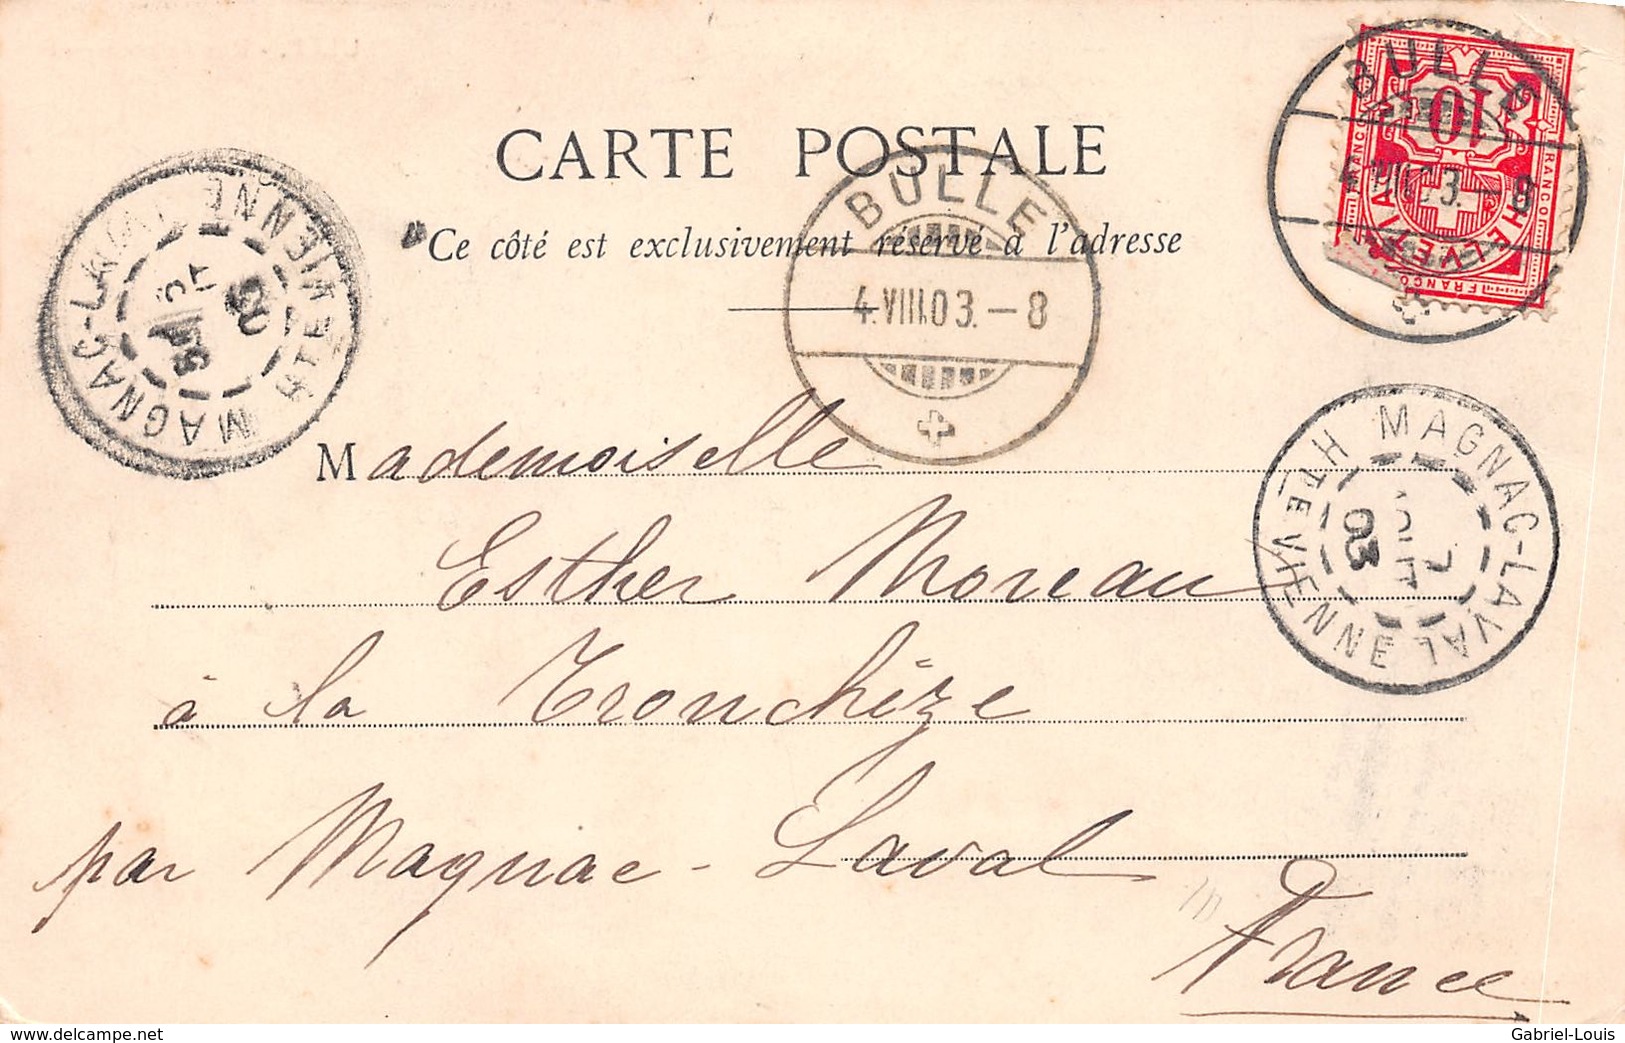 CARTE POSTALE
Ce côté est exclusivement réservé à l'adresse
BULLE
4.VIII.03.–8
BULLE
VIII.03.–8
10
HELVETIA
FRANCO
FRANCO
FRANCO
MAGNAC-LAVAL
HTE VIENNE
03
MAGNAC-LAVAL
HTE VIENNE
03
Mademoiselle
Esther Moreau
à la Tronchize
par Magnac-Laval
France
www.delcampe.net
Gabriel-Louis